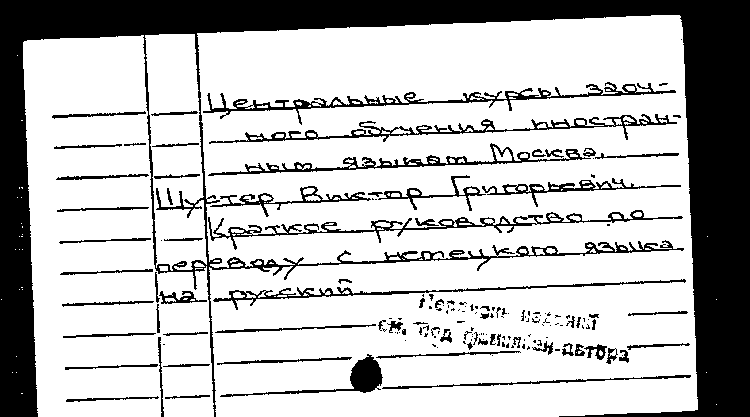 Центральные курсы заоч-
ного обучения иностран-
ным языкам Москва.
Шустер, Виктор Григорьевич.
Краткое руководство по
переводу с немецкого языка
на русский.
Перечень изданий
см. под фамилией автора